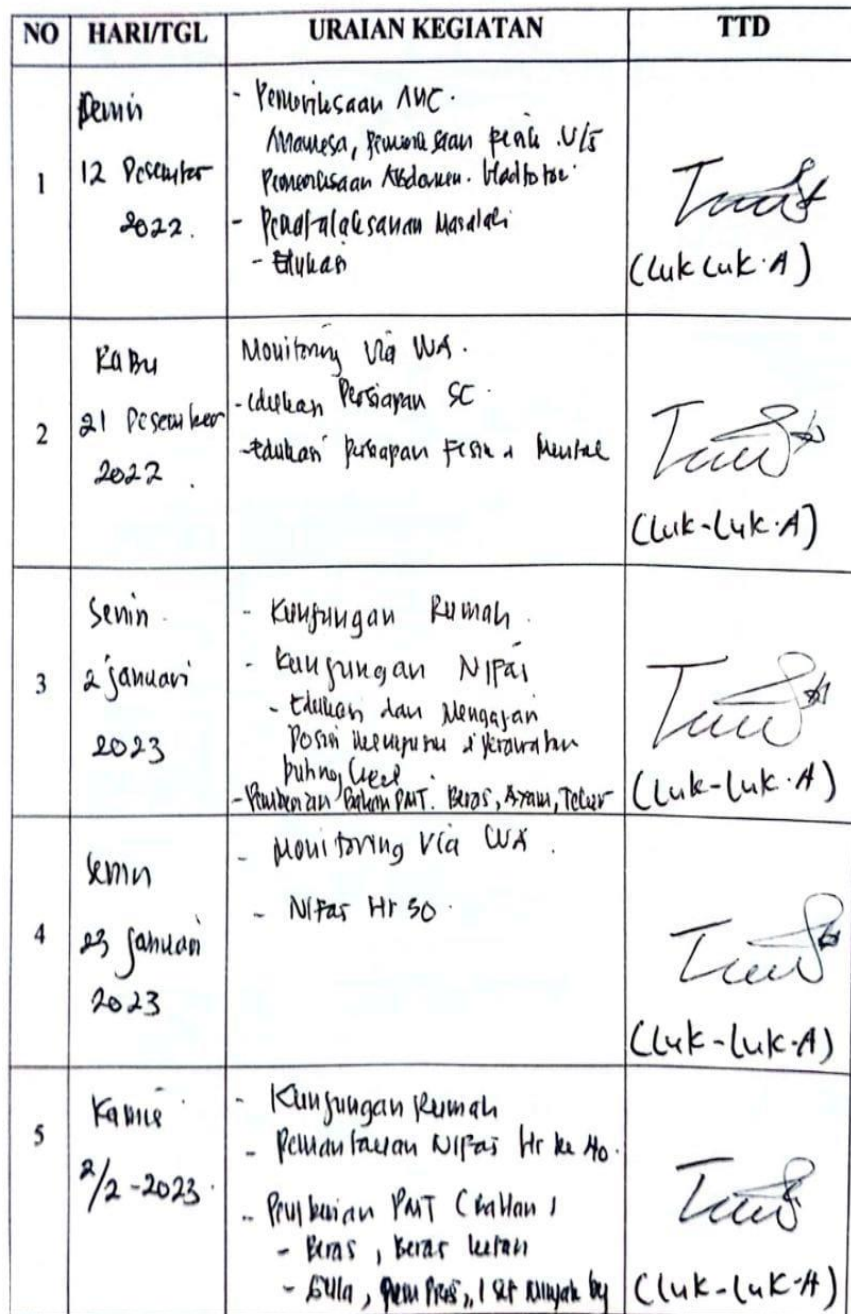 NO HARI/TGL URAIAN KEGIATAN TTD
1
Senin
12 Desember
2022.
- Pemeriksaan ANC.
Pemeriksaan Abdomen.
- Penatalaksanaan Masalah
- Edukasi
(Luk Luk.A)
2
Rabu
21 Desember
2022.
Monitoring Via WA.
- Edukasi Persiapan SC.
- Edukasi persiapan Fisik & Mental
(Luk-Luk.A)
3
Senin.
2 Januari
2023
- Kunjungan Rumah.
- Kunjungan Nifas
- Edukasi dan Mengajari
Posisi menyusui & perawatan
- Pemberian Bahan PMT. Beras, Ayam, Telur
(Luk-Luk.A)
4
Senin
23 Januari
2023
- Monitoring Via WA.
- Nifas Hr 30.
(Luk-Luk.A)
5
Kamis
2/2-2023.
- Kunjungan Rumah
- Pemantauan Nifas Hr ke 40.
- Pemberian PMT (Bahan)
- Beras, Beras ketan
- Gula, 1 set minyak by
(Luk-Luk-A)